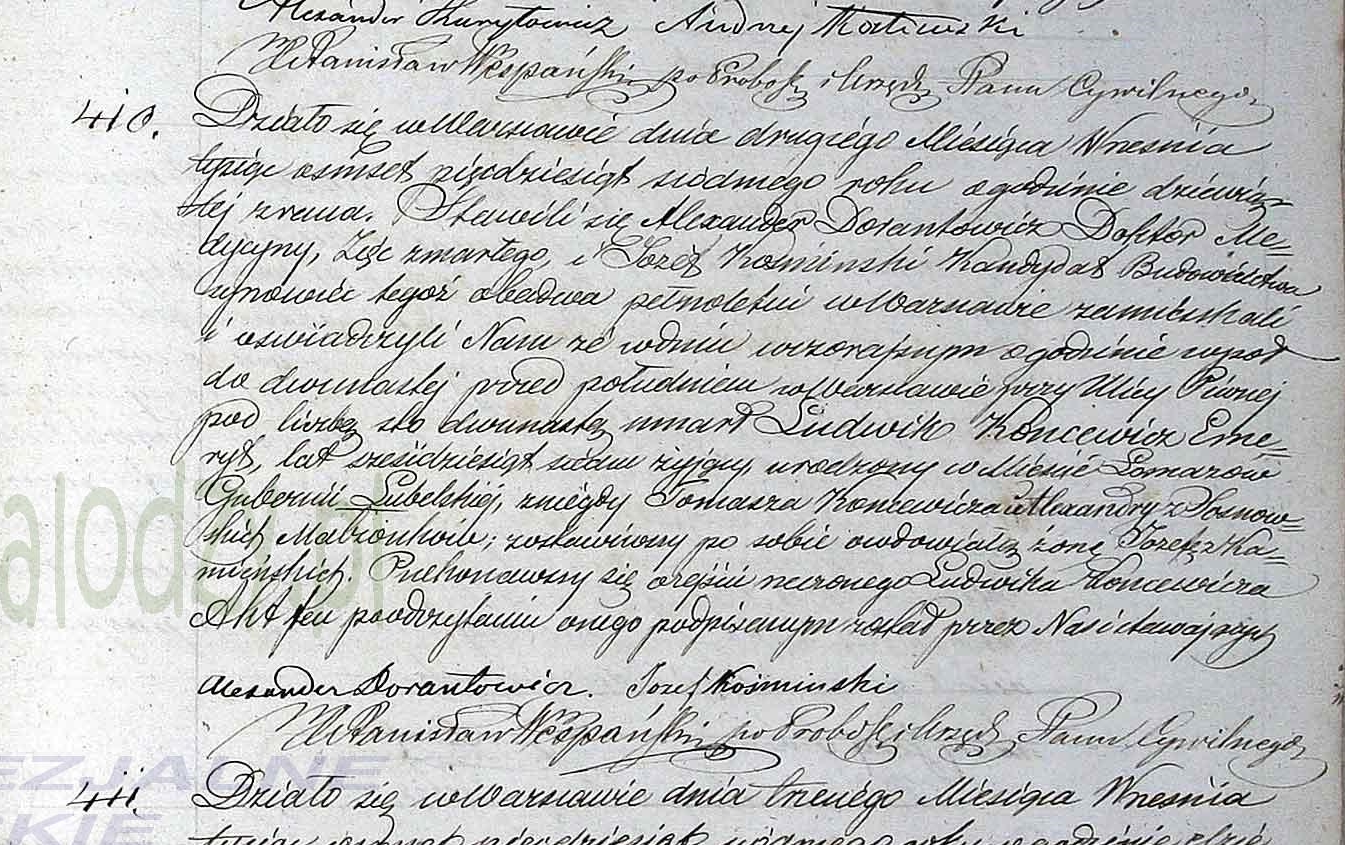 Alexander Kuryłowicz Andrzej
X Stanisław po Probosz i Urzęd Stanu Cywilnego
410. Działo się w Warszawie dnia drugiego Miesiąca Wresnia
tysiąc osmset pięcdziesiąt siodmego roku o godzinie dziewią=
tej zrana. Stawili się Alexander Dorantowicz Doktor Me=
dycyny, Zięc zmarłego, i Jozef Kosminski Kandydat Budownictwa
synowiec tegoż obadwa pełnoletni w Warszawie zamieszkali
i oswiadczyli Nam że w dniu wczorajszym o godzinie wpoł
do dwunastej przed południem w Warszawie przy Ulicy Piwnej
pod liczbą sto dwunastą umarł Ludwik Koncewicz Eme=
ryt, lat szesćdziesiąt siedm żyjący urodzony w Miescie Łomazow
Gubernii Lubelskiej, z niegdy Tomasza Koncewicza i Alexandry z Sosnow=
skich Małżonkow; zostawiwszy po sobie owdowiałą żonę Jozefę z Ka=
minskich. Przekonawszy się o zejsciu rzeczonego Ludwika Koncewicza
Akt ten po odczytaniu onego podpisanym został przez Nas i stawających
Alexander Dorantowicz. Jozef Kośminski
X Stanisław po Probosz i Urzęd Stanu Cywilnego
411. Działo się w Warszawie dnia trzeciego Miesiąca Wresnia
tysiąc osmset pięcdziesiąt siodmego roku o godzinie dzie
alode.pl
EZJALNE
KIE